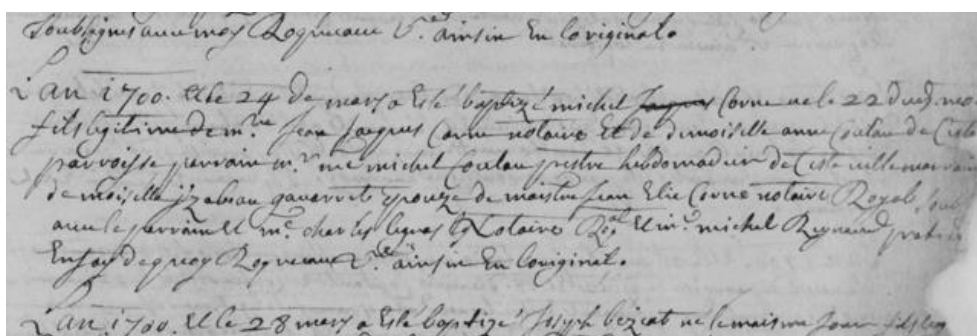 soubsignes avec moy Roqueaue V.re ainsin En Loriginal.
L'an 1700. Et le 24 de mars a Esté baptizé michel Jaques Corne ne le 22 dud. mois
fils legitime de m.re Jean Jacques Corne notaire Et de dimoiselle anne Coulau de Ceste
parroisse parrain m.r me michel Coulau prestre hebdomadier de Ceste ville marraine
de moiselle yzabeau gavarrete Epouze de maistre Jean Elie Corne notaire Royal
avec le parrain Et m.e charles Notaire Ro.al Et m.e michel
En foy de quoy Roqueaue V.re ainsin En Loriginal.
L'an 1700. Et le 28 mars a Esté baptizé Joseph bezcat ne le maisme Jour fils leg